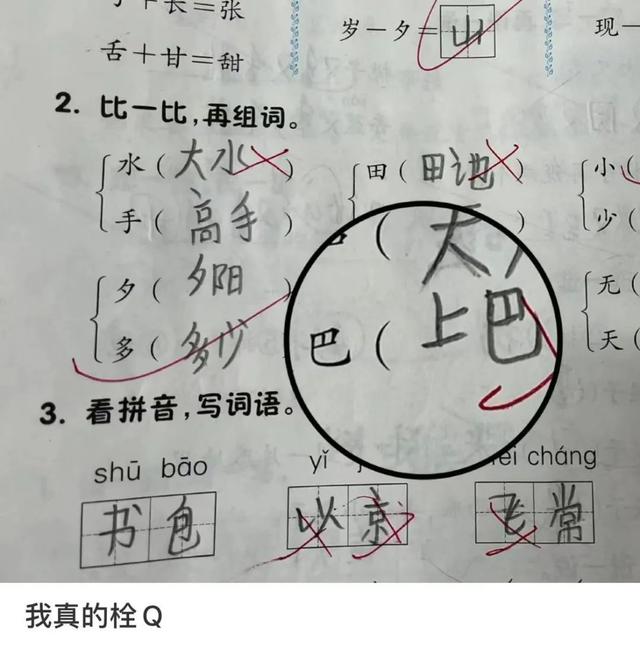 长＝张
舌＋甘＝甜
岁－夕＝山
现－
2. 比一比,再组词。
水（大水）
田（田地）
小（
手（高手）
少（
（大）
夕（夕阳）
无（
巴（上巴
多（多少）
天（
3. 看拼音,写词语。
shū bāo
yǐ
fēi cháng
书包
以京
飞常
我真的栓Q